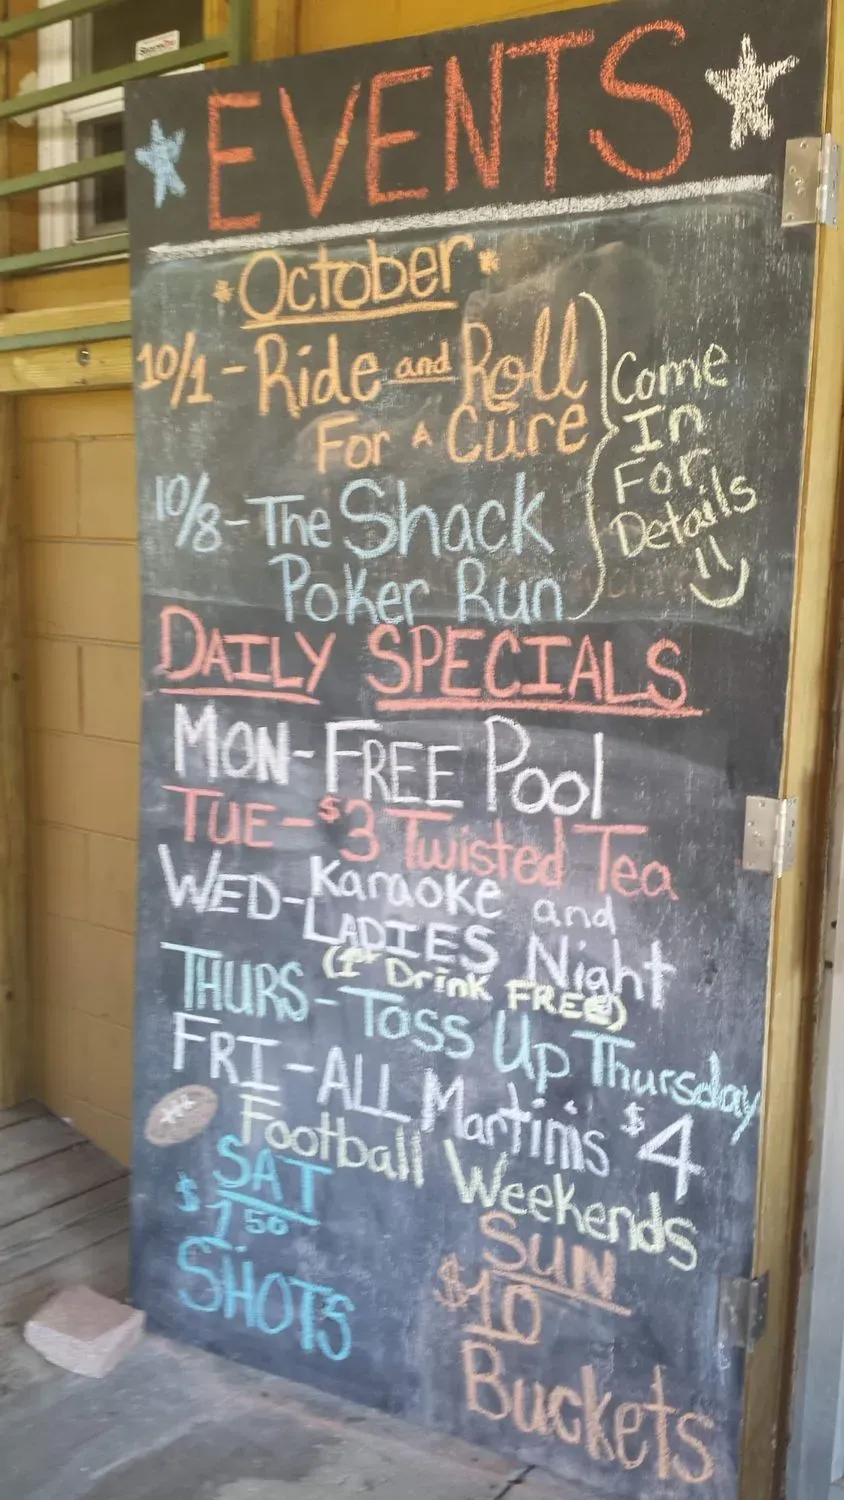 EVENTS
October
10/1 - Ride and Roll
For A Cure
10/8 - The Shack
Poker Run
Come
In
For
Details
DAILY SPECIALS
MON - FREE Pool
TUE - $3 Twisted Tea
WED - Karaoke and
LADIES Night
(1st Drink FREE)
THURS - Toss Up Thursday
FRI - ALL Martini's $4
Football Weekends
SAT
$1.50
SHOTS
SUN
$10
Buckets